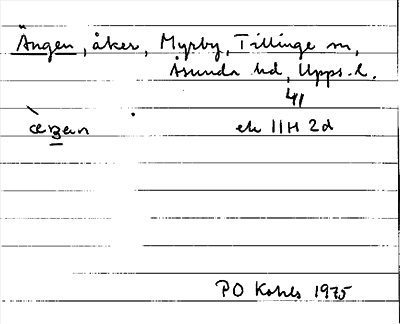 Ängen, åker, Myrby, Tillinge sn,
Åsunda hd, Upps. l.
41
ek 11H 2d
PO Kohls 1975